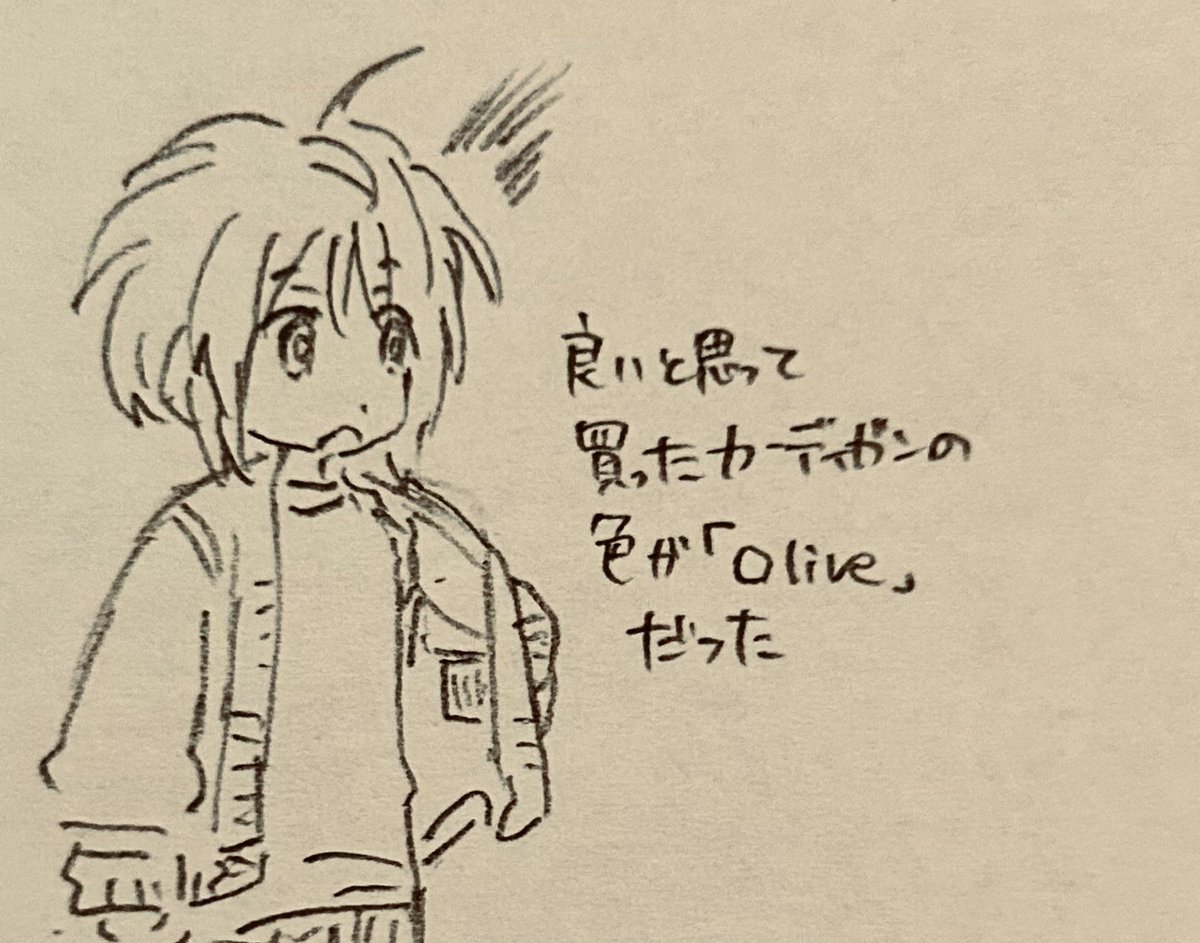 良いと思って
買ったカーディガンの
色が「Olive」
だった